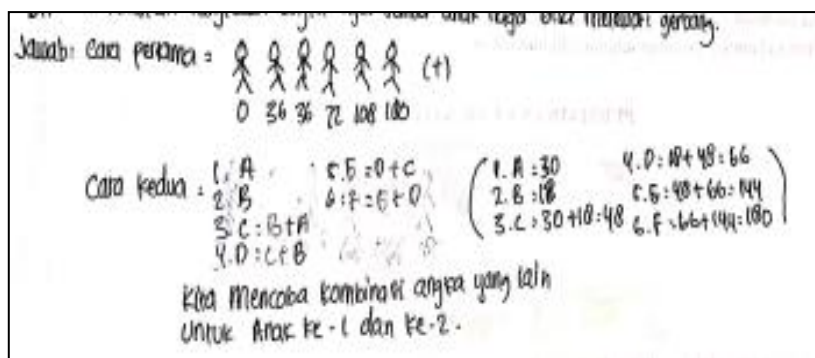 anak naga bisa melewati gerbang.
Jawab: Cara pertama = (+)
0 36 36 72 108 180
Cara kedua =
1. A
2. B
3. C = B+A
4. D = C+B
5. E = D+C
6. F = E+D
1. A = 30
2. B = 18
3. C = 30+18 = 48
4. D = 18+48 = 66
5. E = 48+66 = 144
6. F = 66+144 = 180
Kita mencoba kombinasi angka yang lain
Untuk Anak ke-1 dan ke-2.